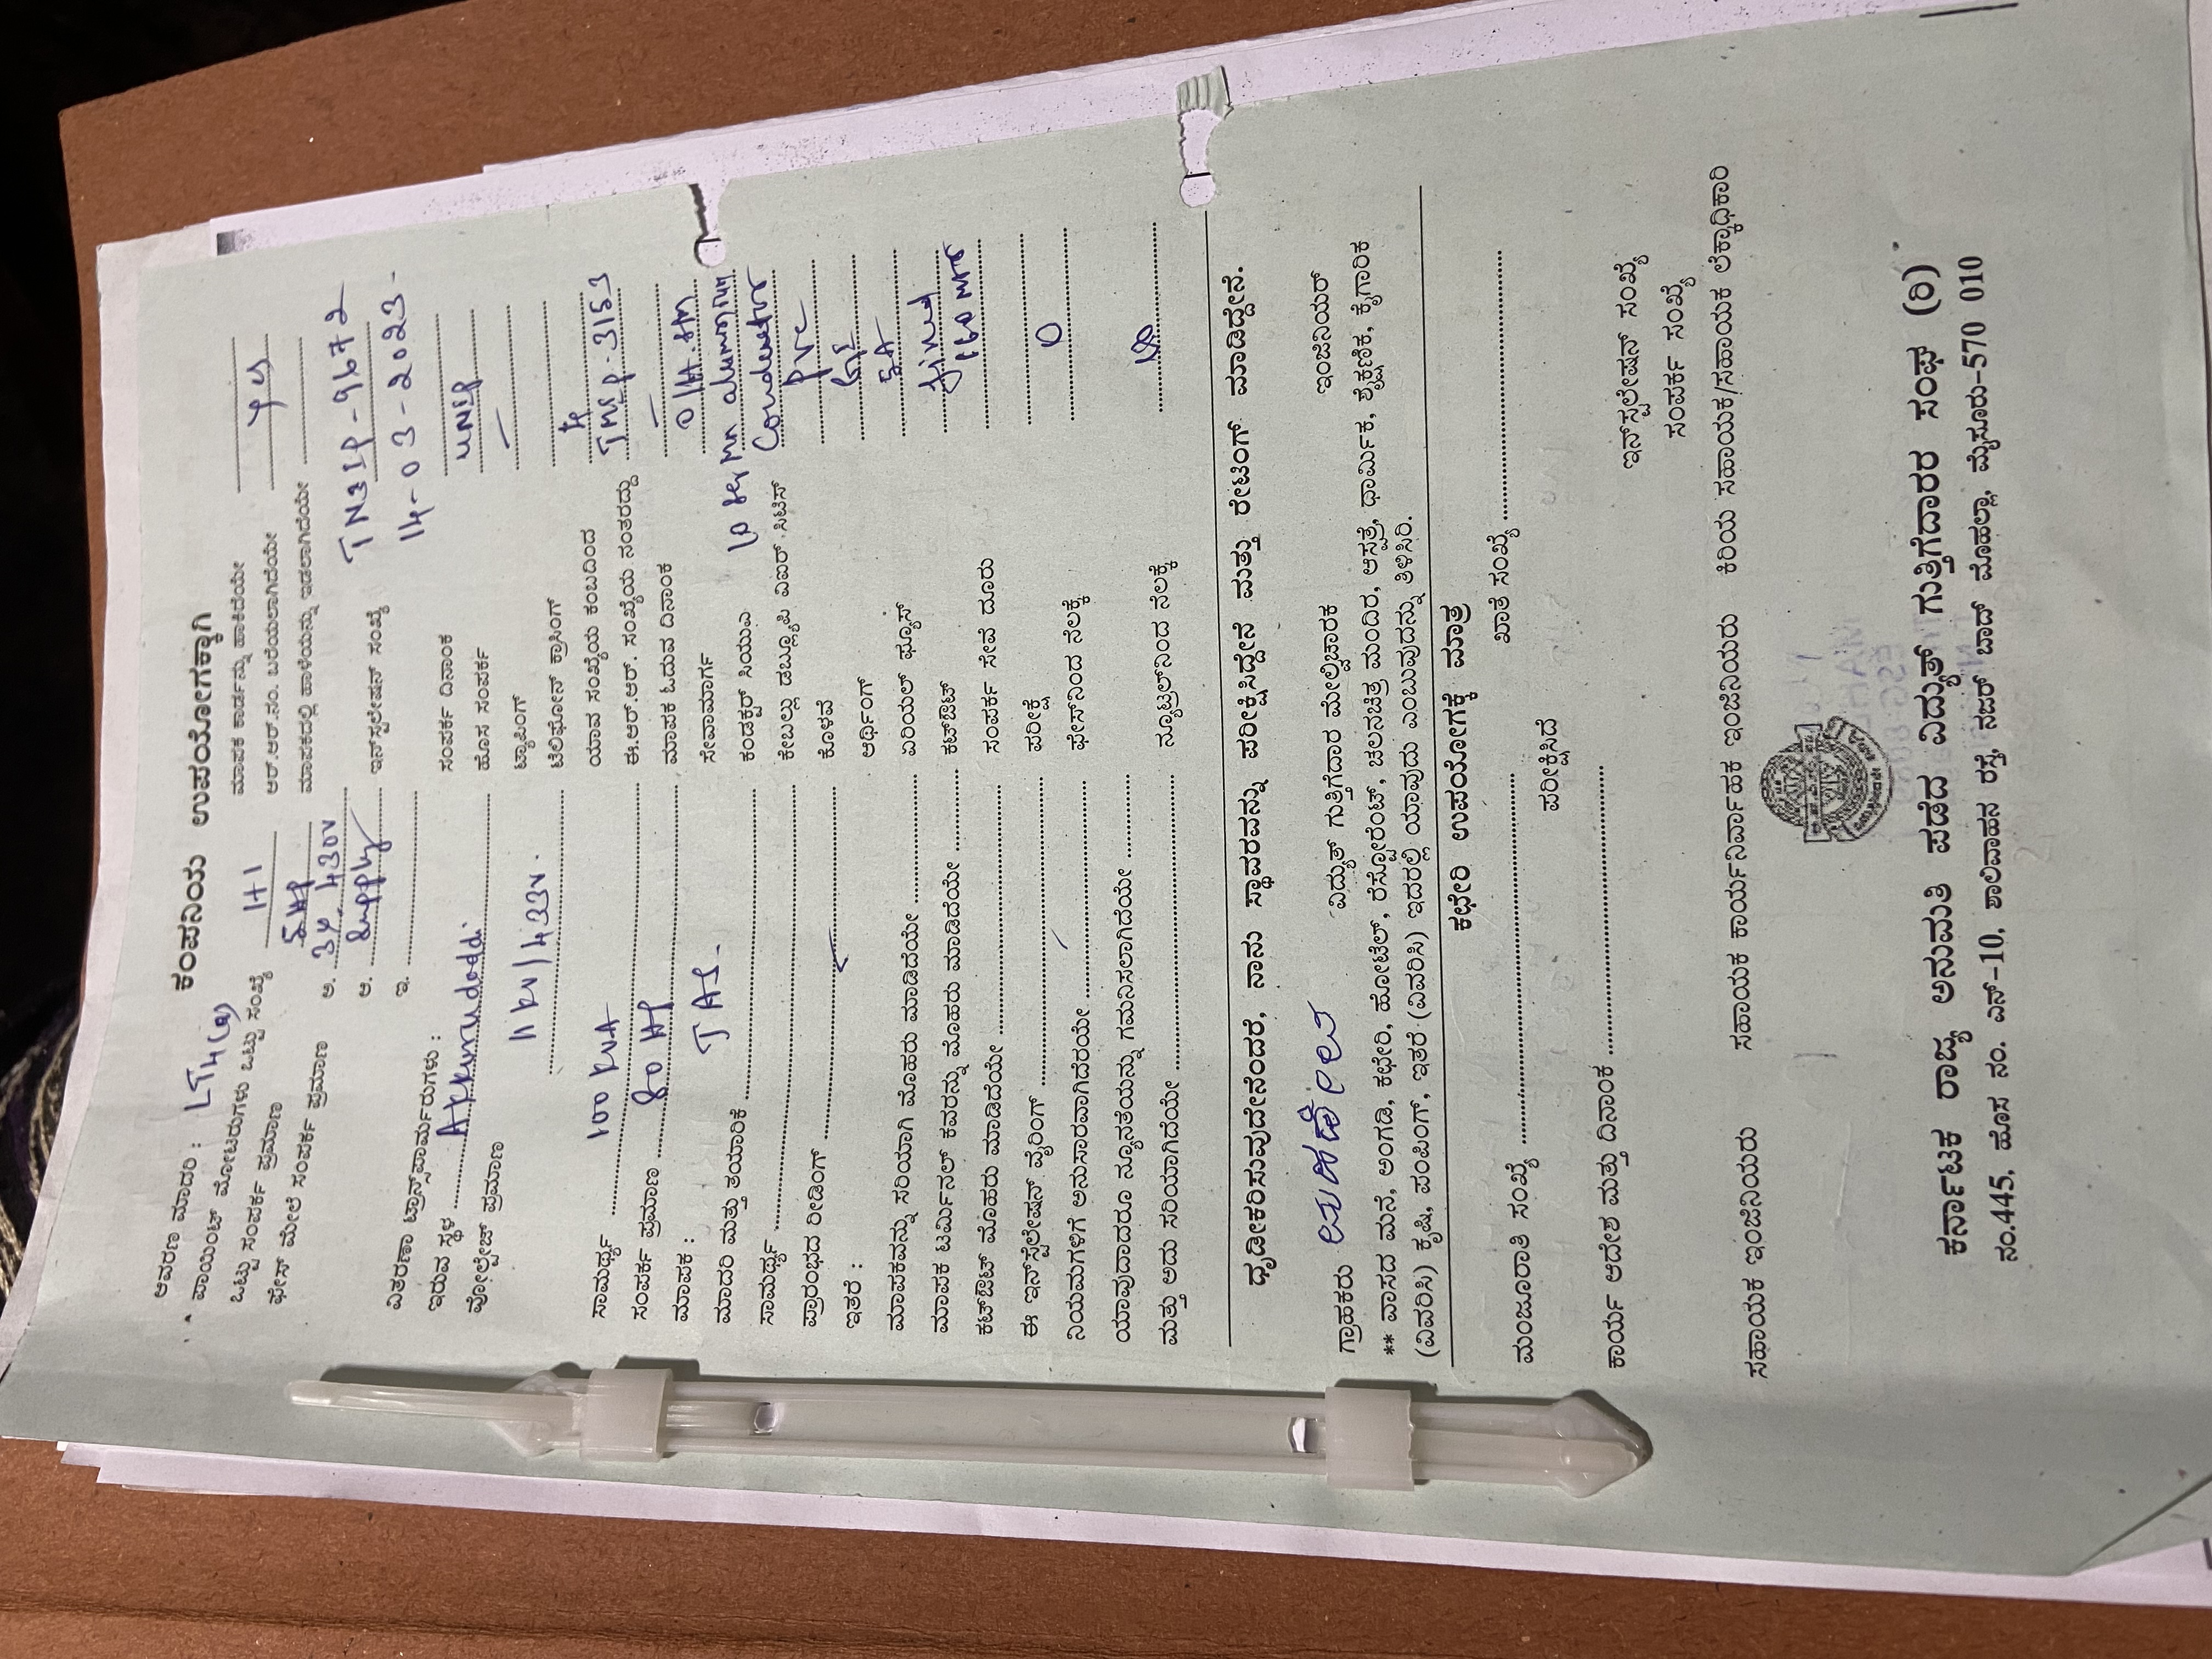 ಕಂಪನಿಯ ಉಪಯೋಗಕ್ಕಾಗಿ
ಆವರಣ ಮಾದರಿ : LT4(a)
ಪಾಯಿಂಟ್ ಮೋಟರುಗಳು ಒಟ್ಟು ಸಂಖ್ಯೆ 1+1
ಒಟ್ಟು ಸಂಪರ್ಕ ಪ್ರಮಾಣ 5HP
ಫೇಸ್ ಮೇಲೆ ಸಂಪರ್ಕ ಪ್ರಮಾಣ ಅ. 3φ. 430V
ಆ. Supply
ಇ.
ವಿತರಣಾ ಟ್ರಾನ್ಸ್‌ಫಾರ್ಮರುಗಳು :
ಇರುವ ಸ್ಥಳ Akkurudoddi.
ವೋಲ್ಟೇಜ್ ಪ್ರಮಾಣ
11 KV / 433V.
ಸಾಮರ್ಥ್ಯ 100 KVA
ಸಂಪರ್ಕ ಪ್ರಮಾಣ 80 HP
ಮಾಪಕ :
ಮಾದರಿ ಮತ್ತು ತಯಾರಿಕೆ
ಸಾಮರ್ಥ್ಯ
ಪ್ರಾರಂಭದ ರೀಡಿಂಗ್
ಇತರೆ :
ಮಾಪಕವನ್ನು ಸರಿಯಾಗಿ ಮೊಹರು ಮಾಡಿದೆಯೇ
ಮಾಪಕ ಟರ್ಮಿನಲ್ ಕವರನ್ನು ಮೊಹರು ಮಾಡಿದೆಯೇ
ಕಟ್‌ಔಟ್ ಮೊಹರು ಮಾಡಿದೆಯೇ
ಈ ಇನ್‌ಸ್ಟೆಲೇಷನ್ ವೈರಿಂಗ್
ನಿಯಮಗಳಿಗೆ ಅನುಸಾರವಾಗಿದೆರೆಯೇ
ಯಾವುದಾದರೂ ನ್ಯೂನತೆಯನ್ನು ಗಮನಿಸಲಾಗಿದೆಯೇ
ಮತ್ತು ಅದು ಸರಿಯಾಗಿದೆಯೇ
ಮಾಪಕ ಕಾರ್ಡನ್ನು ಹಾಕಿದೆಯೇ
ಆರ್.ಆರ್.ನಂ. ಬರೆಯಲಾಗಿದೆಯೇ yes
ಮಾಪಕದಲ್ಲಿ ಹಾಳೆಯನ್ನು ಇಡಲಾಗಿದೆಯೇ
ಇನ್‌ಸ್ಟಲೇಷನ್ ಸಂಖ್ಯೆ TN3IP-9672
14-03-2023
ಸಂಪರ್ಕ ದಿನಾಂಕ
ಹೊಸ ಸಂಪರ್ಕ
ಟ್ಯಾಪಿಂಗ್
ಟೆಲಿಫೋನ್ ಕ್ರಾಸಿಂಗ್
ಯಾವ ಸಂಖ್ಯೆಯ ಕಂಬದಿಂದ
ಈ.ಆರ್.ಆರ್. ಸಂಖ್ಯೆಯ ನಂತರದ್ದು
ಮಾಪಕ ಓದುವ ದಿನಾಂಕ
ಸೇವಾಮಾರ್ಗ
ಕಂಡಕ್ಟರ್ ಸಿಯುಎ
ಕೇಬಲ್ಲು ಡಬ್ಲ್ಯೂಪಿ ವಿಐಆರ್ .ಸಿಟಿಸ್ Conductor
ಕೊಳವೆ PVC
ಅರ್ಥಿಂಗ್ GI
ಏರಿಯಲ್ ಫ್ಯೂಸ್ 5A
ಕಟ್‌ಔಟ್ fixed
ಸಂಪರ್ಕ ಸೇವೆ ದೂರು
ಪರೀಕ್ಷೆ
ಫೇಸ್‌ನಿಂದ ನೆಲಕ್ಕೆ 0
ನ್ಯೂಟ್ರಲ್‌ನಿಂದ ನೆಲಕ್ಕೆ
ಧೃಡೀಕರಿಸುವುದೇನೆಂದರೆ, ನಾನು ಸ್ಥಾವರವನ್ನು ಪರೀಕ್ಷಿಸಿದ್ದೇನೆ ಮತ್ತು ರೇಟಿಂಗ್ ಮಾಡಿದ್ದೇನೆ.
ಗ್ರಾಹಕರು ವಿದ್ಯುತ್ ಗುತ್ತಿಗೆದಾರ ಮೇಲ್ವಿಚಾರಕ ಇಂಜಿನಿಯರ್
** ವಾಸದ ಮನೆ, ಅಂಗಡಿ, ಕಛೇರಿ, ಹೋಟೆಲ್, ರೆಸ್ಟೋರೆಂಟ್, ಚಲನಚಿತ್ರ ಮಂದಿರ, ಆಸ್ಪತ್ರೆ, ಧಾರ್ಮಿಕ, ಶೈಕ್ಷಣಿಕ, ಕೈಗಾರಿಕ
(ವಿವರಿಸಿ) ಕೃಷಿ, ಪಂಪಿಂಗ್, ಇತರೆ (ವಿವರಿಸಿ) ಇದರಲ್ಲಿ ಯಾವುದು ಎಂಬುವುದನ್ನು ತಿಳಿಸಿರಿ.
ಕಛೇರಿ ಉಪಯೋಗಕ್ಕೆ ಮಾತ್ರ
ಮಂಜೂರಾತಿ ಸಂಖ್ಯೆ ಖಾತೆ ಸಂಖ್ಯೆ
ಪರೀಕ್ಷಿಸಿದೆ
ಕಾರ್ಯ ಆದೇಶ ಮತ್ತು ದಿನಾಂಕ
ಇನ್‌ಸ್ಟಲೇಷನ್ ಸಂಖ್ಯೆ
ಸಂಪರ್ಕ ಸಂಖ್ಯೆ
ಸಹಾಯಕ ಇಂಜಿನಿಯರು ಸಹಾಯಕ ಕಾರ್ಯನಿರ್ವಾಹಕ ಇಂಜಿನಿಯರು ಕಿರಿಯ ಸಹಾಯಕ/ಸಹಾಯಕ ಲೆಕ್ಕಾಧಿಕಾರಿ
ಕರ್ನಾಟಕ ರಾಜ್ಯ ಅನುಮತಿ ಪಡೆದ ವಿದ್ಯುತ್ ಗುತ್ತಿಗೆದಾರರ ಸಂಘ (ರಿ)
ನಂ.445, ಹೊಸ ನಂ. ಎನ್-10, ಶಾಲಿವಾಹನ ರಸ್ತೆ, ನಜರ್ ಬಾದ್ ಮೊಹಲ್ಲಾ, ಮೈಸೂರು-570 010